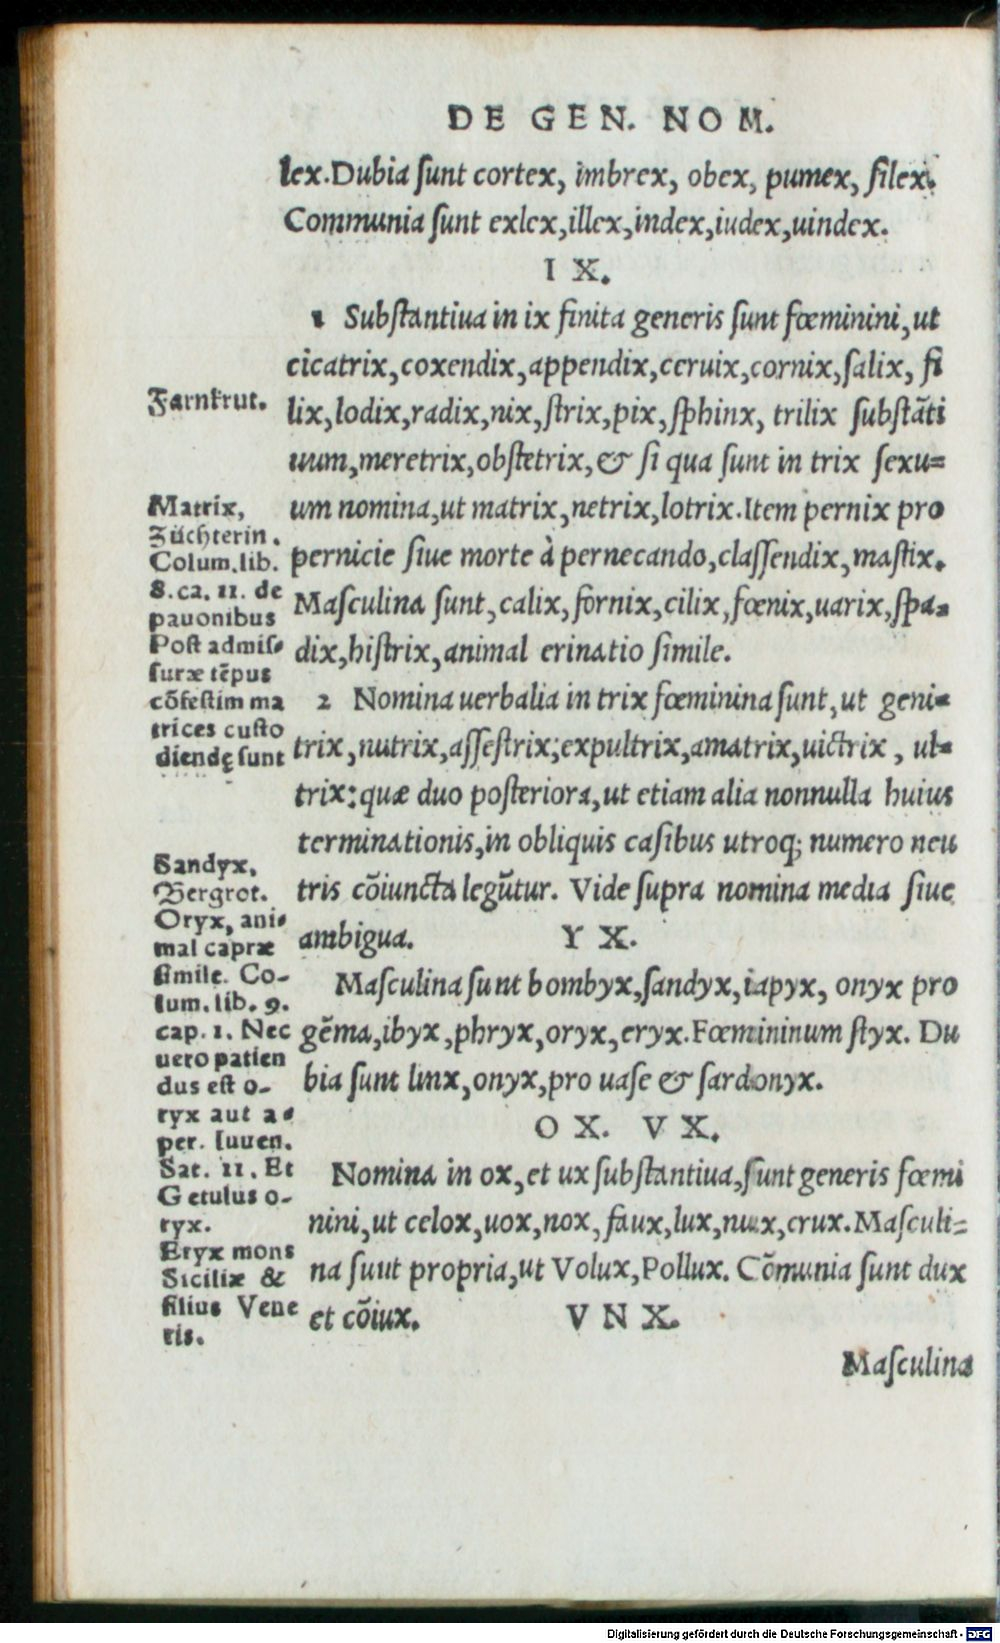 DE GEN. NOM.
lex. Dubia ſunt cortex, imbrex, obex, pumex, ſilex.
Communia ſunt exlex, illex, index, iudex, uindex.
I X.
1 Subſtantiua in ix finita generis ſunt fœminini, ut
cicatrix, coxendix, appendix, ceruix, cornix, ſalix, fi
lix, lodix, radix, nix, ſtrix, pix, ſphinx, trilix ſubſtāti
uum, meretrix, obſtetrix, & ſi qua ſunt in trix ſexu=
um nomina, ut matrix, netrix, lotrix. Item pernix pro
pernicie ſiue morte à pernecando, claſſendix, maſtix.
Maſculina ſunt, calix, fornix, cilix, fœnix, uarix, ſpa=
dix, hiſtrix, animal erinatio ſimile.
2 Nomina uerbalia in trix fœminina ſunt, ut geni=
trix, nutrix, aſſeſtrix, expultrix, amatrix, uictrix, ul=
trix: quæ duo poſteriora, ut etiam alia nonnulla huius
terminationis, in obliquis caſibus utroq; numero neu
tris cōiuncta legūtur. Vide ſupra nomina media ſiue
ambigua.
Y X.
Maſculina ſunt bombyx, ſandyx, iapyx, onyx pro
gēma, ibyx, phryx, oryx, eryx. Fœmininum ſtyx. Du
bia ſunt linx, onyx, pro uaſe & ſardonyx.
O X. V X.
Nomina in ox, et ux ſubſtantiua, ſunt generis fœmi
nini, ut celox, uox, nox, faux, lux, nux, crux. Maſculi=
na ſuut propria, ut Volux, Pollux. Cōmunia ſunt dux
et cōiux.
V N X.
Maſculina
Farnkrut.
Matrix,
Züchterin.
Colum. lib.
8. ca. 11. de
pauonibus
Poſt admiſ=
ſuræ tēpus
cōfeſtim ma
trices cuſto
diendę ſunt
Sandyx,
Bergrot.
Oryx, ani=
mal capræ
ſimile. Co-
lum. lib. 9.
cap. 1. Nec
uero patien
dus eſt o-
ryx aut a=
per. Iuuen.
Sat. 11. Et
Getulus o-
ryx.
Eryx mons
Siciliæ &
filius Vene
ris.
Digitalisierung gefördert durch die Deutsche Forschungsgemeinschaft - DFG